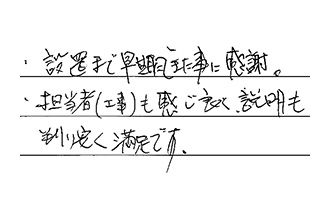 ・設置まで早期に出来た事に感謝。
・担当者(工事)も感じ良く、説明も
判り安く満足です。